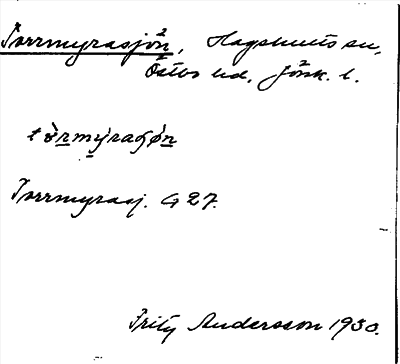 Torrmyrasjön, Hagshults sn,
Östbo hd, Jönk. l.
tòrmýraʃøn
Torrmyrasj. G 27.
Fritz Andersson 1930.